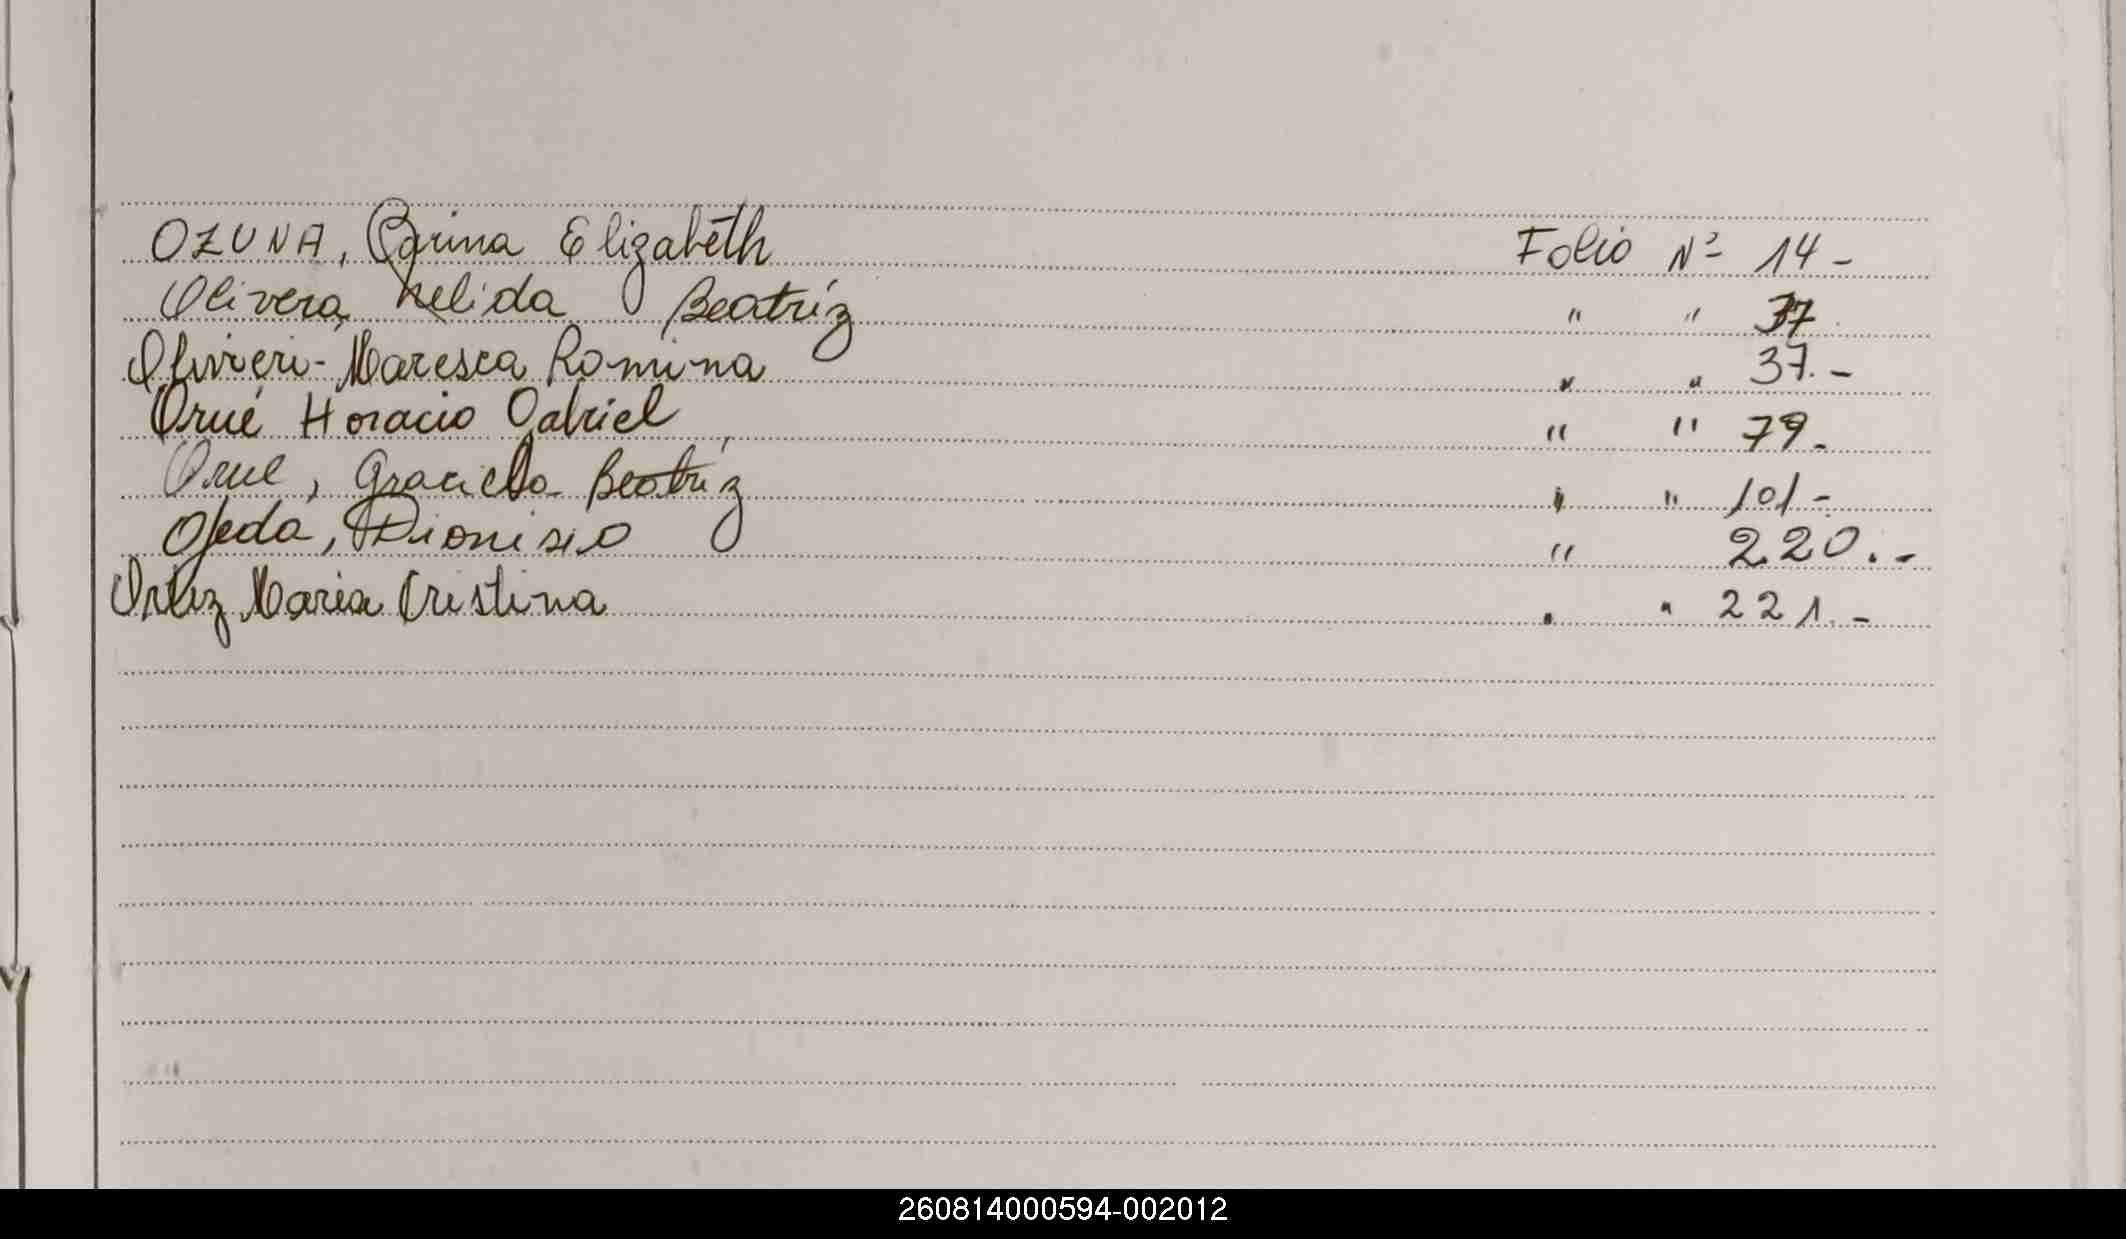 OZUNA, Carina Elizabeth Folio Nº 14-
Olivera, Nelida Beatriz " " 37
Olivieri-Maresca Romina " " 37.-
Orué Horacio Gabriel " " 79.-
Orue, Graciela Beatriz " " 101-
Ojeda, Dionisio " 220.-
Ortiz Maria Cristina " " 221.-
260814000594-002012